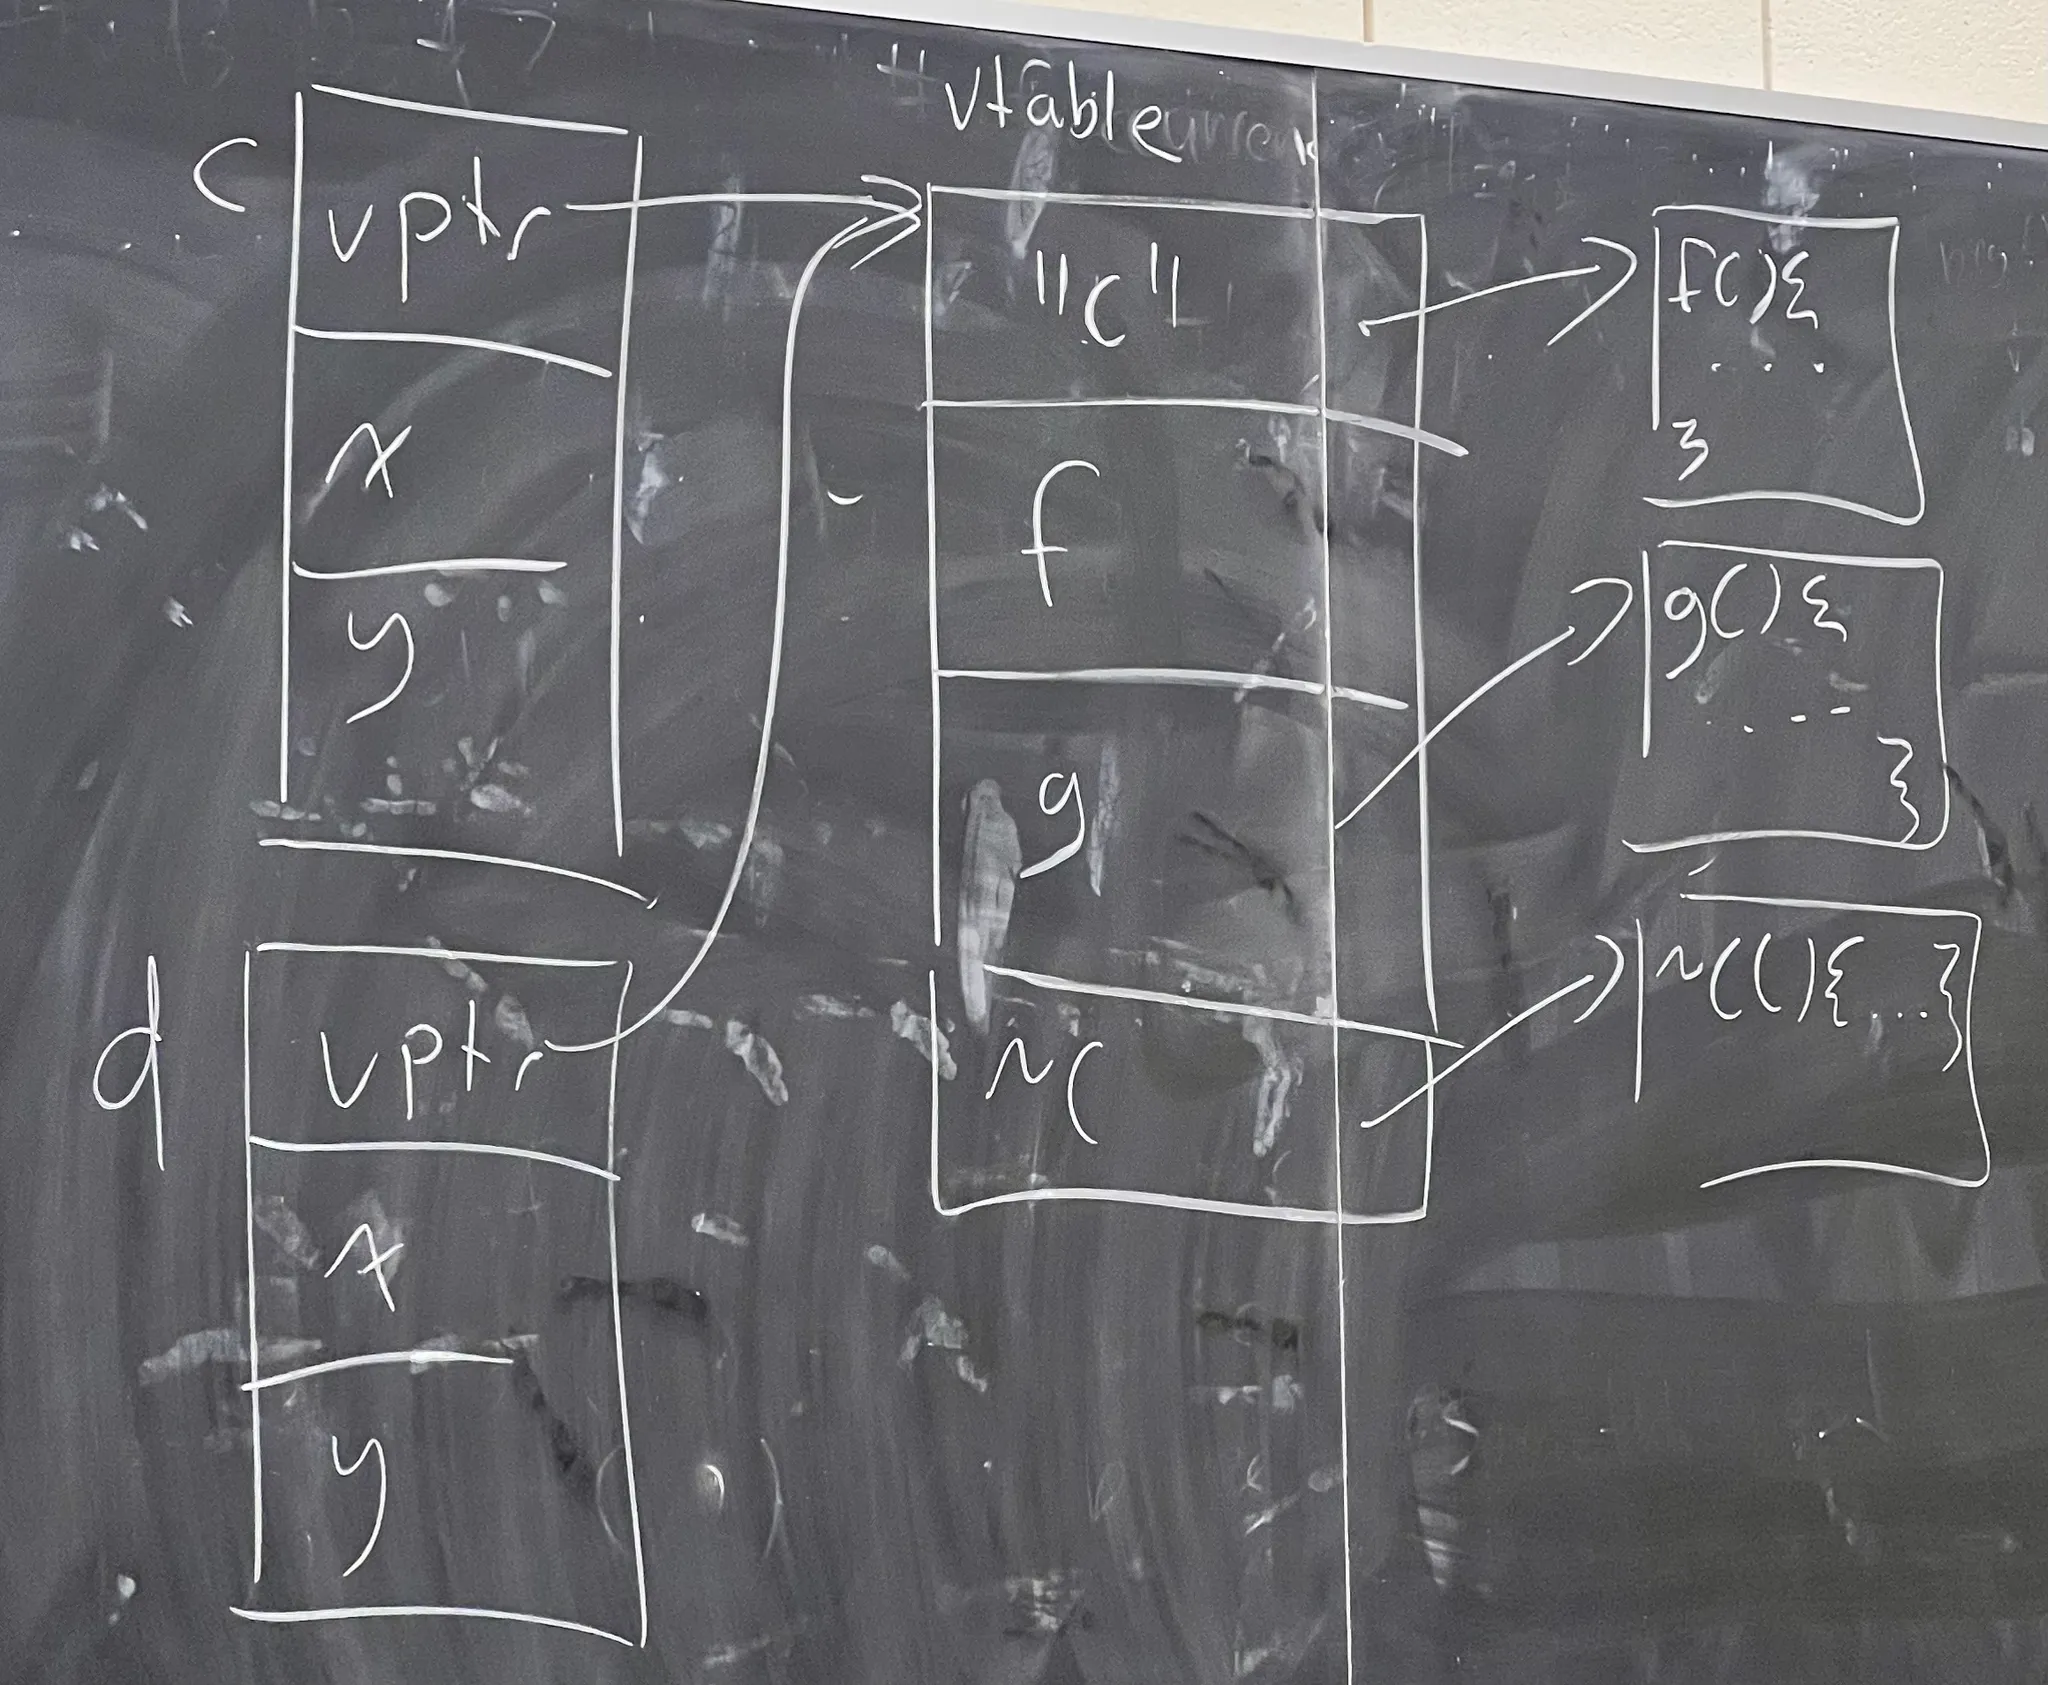 vtable
c
vptr
x
y
d
vptr
x
y
"C"
f
g
~C
f(){
....
}
g(){
....
}
~C(){...}